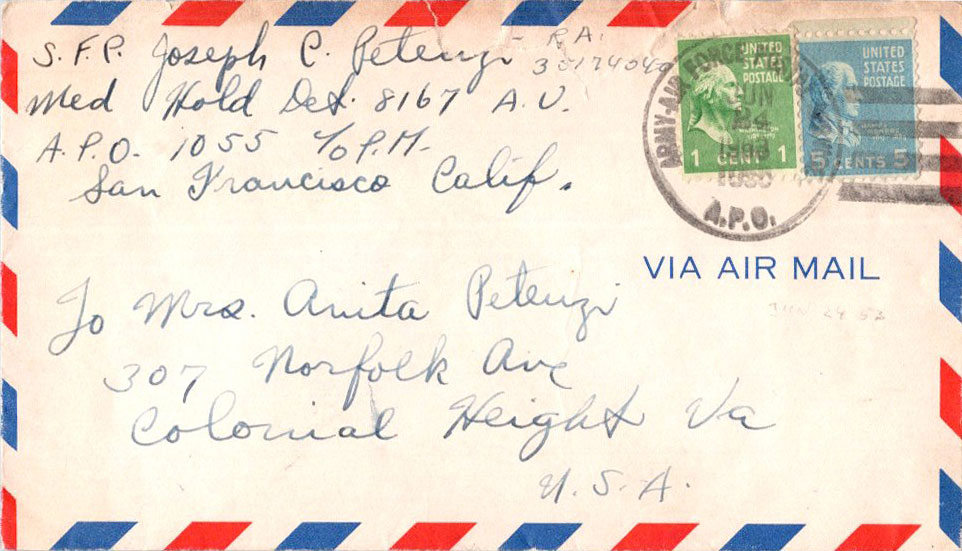 S.F.C. Joseph C. Petenzi - RA.
Med Hold Det. 8167 A.U.
A.P.O. 1055 c/o P.M.
San Francisco Calif.
UNITED
STATES
POSTAGE
1 CENT 1
UNITED
STATES
POSTAGE
5 CENTS 5
ARMY-AIR FORCE POSTAL
JUN
24
1953
A.P.O.
VIA AIR MAIL
To Mrs. Anita Petenzi
307 Norfolk Ave
Colonial Height Va
U.S.A.